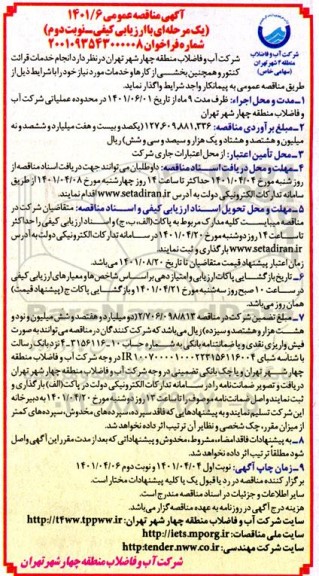 آگهی مناقصه عمومی ۱۴۰۱/۶
(یک مرحله‌ای با ارزیابی کیفی - نوبت دوم)
شماره فراخوان ۲۰۰۱۰۹۳۵۴۳۰۰۰۰۰۸
شرکت آب و فاضلاب
منطقه ۴ شهر تهران
(سهامی خاص)
شرکت آب و فاضلاب منطقه چهار شهر تهران در نظر دارد انجام خدمات قرائت
کنتور و همچنین بخشی از کارها و خدمات مورد نیاز خود را با شرایط ذیل از
طریق مناقصه عمومی به پیمانکار واجد شرایط واگذار نماید.
۱- مدت و محل اجراء: ظرف مدت ۹ ماه از تاریخ ۱۴۰۱/۰۶/۰۱ در محدوده عملیاتی شرکت آب
و فاضلاب منطقه چهار شهر تهران
۲- مبلغ برآوردی مناقصه: ۱۲۷,۶۰۹,۸۸۱,۳۳۶ (یکصد و بیست و هفت میلیارد و ششصد و نه
میلیون و هشتصد و هشتاد و یک هزار و سیصد و سی و شش) ریال
۳- محل تأمین اعتبار: از محل اعتبارات جاری شرکت
۴- مهلت و محل دریافت اسناد مناقصه: داوطلبان می‌توانند جهت دریافت اسناد مناقصه از
روز شنبه مورخ ۱۴۰۱/۰۴/۰۴ حداکثر تا ساعت ۱۹ روز چهارشنبه مورخ ۱۴۰۱/۰۴/۰۸ از طریق
سامانه تدارکات الکترونیکی دولت به آدرس www.setadiran.ir اقدام نمایند.
۵- مهلت و محل تحویل اسناد ارزیابی کیفی و اسناد مناقصه: متقاضیان شرکت در
مناقصه میبایست کلیه مدارک مربوط به پاکات (الف، ب، ج) و اسناد ارزیابی کیفی را حداکثر
تا ساعت ۱۴ روز دوشنبه مورخ ۱۴۰۱/۰۴/۲۰ در سامانه تدارکات الکترونیکی دولت به آدرس
www.setadiran.ir بارگذاری و ثبت نمایند.
زمان اعتبار پیشنهاد قیمت متقاضیان تا تاریخ ۱۴۰۱/۰۸/۲۰ می‌باشد.
۶- تاریخ بازگشایی پاکات ارزیابی و امتیازدهی براساس شاخص‌ها و معیارهای ارزیابی کیفی
در ساعت ۱۰ صبح روز سه‌شنبه مورخ ۱۴۰۱/۰۴/۲۱ و بازگشایی پاکات ج (پیشنهاد قیمت)
همان روز می‌باشد.
۷- مبلغ تضمین شرکت در مناقصه ۲/۷۰۶/۰۹۸/۸۱۳ (دو میلیارد و هفتصد و شش میلیون و نود و
هشت هزار و هشتصد و سیزده) ریال می‌باشد که شرکت کنندگان در مناقصه می‌توانند به صورت
فیش واریزی نقدی و یا ضمانتنامه بانکی به شماره حساب
نزد بانک رسالت
با شناسه شبای
در وجه شرکت آب و فاضلاب منطقه
چهار شهر تهران و یا چک بانکی تضمینی در وجه شرکت آب و فاضلاب منطقه چهار شهر تهران
دریافت و تصویر ضمانت نامه را در سامانه تدارکات الکترونیکی دولت در پاکت (الف) بارگذاری و
ثبت نماید و اصل ضمانت‌نامه موصوف را تا ساعت ۱۳ روز دوشنبه مورخ ۱۴۰۱/۰۴/۲۰ به دبیرخانه
این شرکت تسلیم نمایند و به پیشنهادهایی که فاقد سپرده، سپرده‌های مخدوش، سپرده‌های کمتر
از میزان مقرر، چک شخصی و نظایر آن ترتیب اثر داده نخواهد شد.
۸- به پیشنهادات فاقد امضاء، مشروط، مخدوش و پیشنهاداتی که بعد از مدت مقرر این آگهی واصل
شود مطلقاً ترتیب اثر داده نخواهد شد.
۹- زمان چاپ آگهی: نوبت اول ۱۴۰۱/۰۴/۰۴ و نوبت دوم ۱۴۰۱/۰۴/۰۶
برگزار کننده مناقصه در رد یا قبول یک یا کلیه پیشنهادات مختار است.
سایر اطلاعات و جزئیات در اسناد مناقصه مندرج است.
هزینه درج آگهی در روزنامه به عهده مناقصه گزار می‌باشد.
سایت شرکت آب و فاضلاب منطقه چهار شهر تهران: http://t4ww.tppww.ir
سایت ملی مناقصات: http://iets.mporg.ir
سایت شرکت مهندسی: http:tender.nww.co.ir
شرکت آب و فاضلاب منطقه چهار شهر تهران